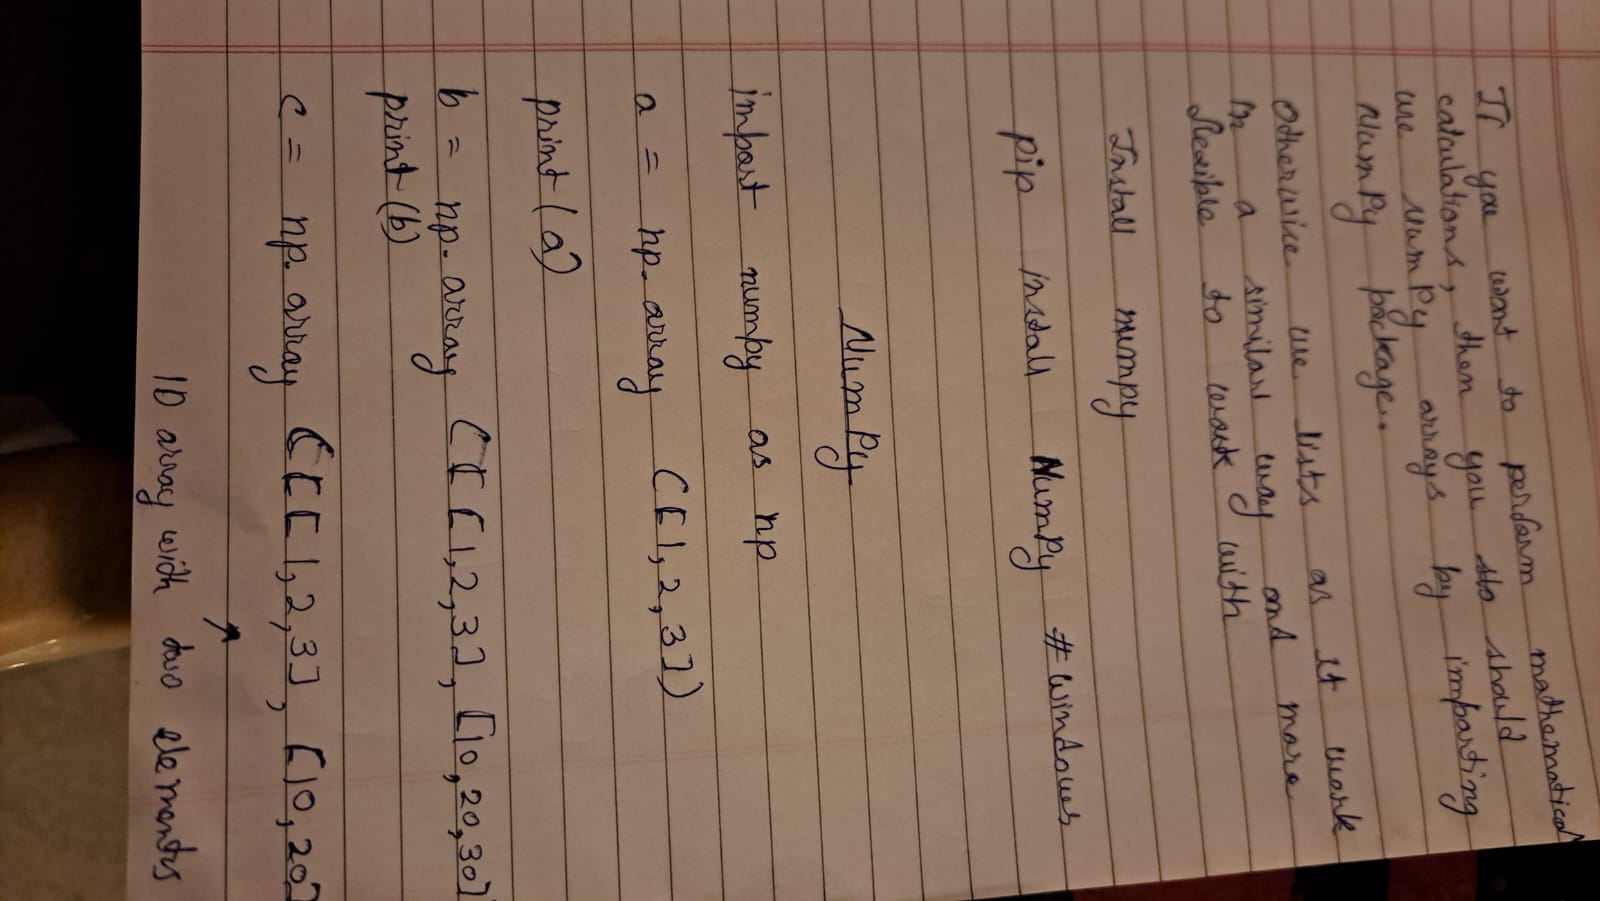 If you want to perform mathematical
calculations, then you sho should
use NumPy arrays by importing
NumPy package.
Otherwise use lists as it work
in a similar way and more
flexible to work with
Install numpy
pip install NumPy # windows
NumPy
import numpy as np
a = np.array ([1,2,3])
print(a)
b = np.array ([[1,2,3], [10,20,30]
print(b)
c = np.array ([[1,2,3], [10,20]
↑
1D array with two elements